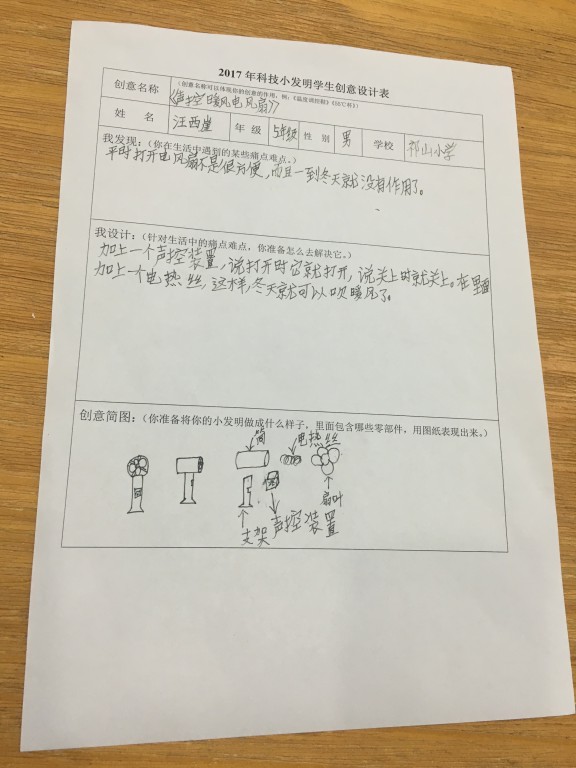 2017 年科技小发明学生创意设计表
创意名称
(创意名称可以体现你的创意的作用，例：《温度调控鞋》
《声控暖风电风扇》
姓 名 汪西崖 年 级 5年级 性 别 男 学校 祁山小学
我发现：(你在生活中遇到的某些痛点难点。)
平时打开电风扇不是很方便，而且一到冬天就没有作用了。
我设计：(针对生活中的痛点难点，你准备怎么去解决它。)
加上一个声控装置，说打开时它就打开，说关上时就关上。在里面
加上一个电热丝，这样，冬天就可以吹暖风了。
创意简图：(你准备将你的小发明做成什么样子，里面包含哪些零部件，用图纸表现出来。)
筒
电热丝
扇叶
支架
声控装置